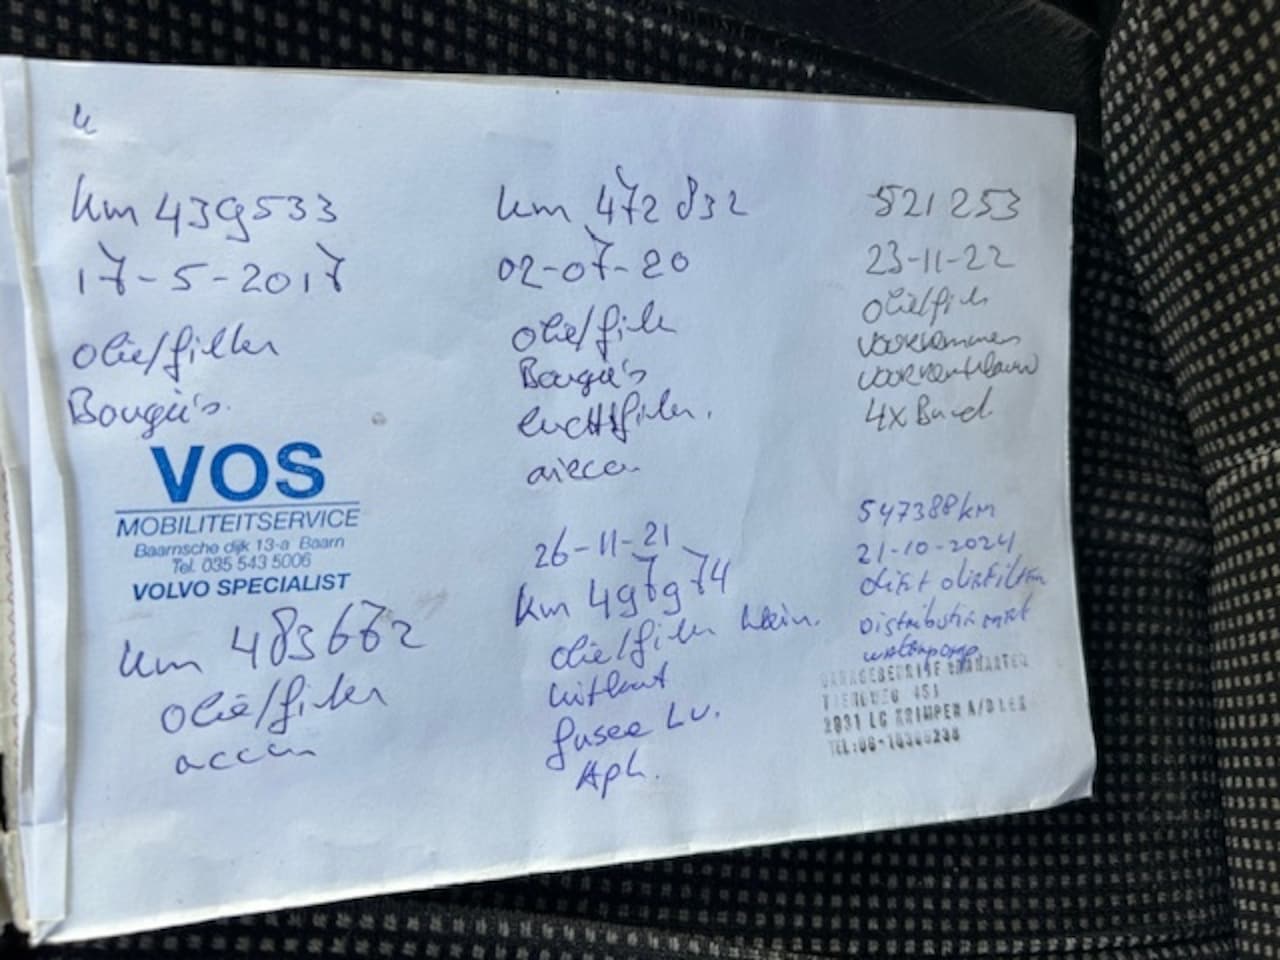 km 439533
17-5-2017
olie/filter
Bougie's.
VOS
MOBILITEITSERVICE
Baarnsche dijk 13-a Baarn
Tel. 035 543 5006
VOLVO SPECIALIST
km 483662
olie/filter
accu
km 472832
02-07-20
olie/filter
Bougie's
luchtfilter.
airco
26-11-21
km 497974
olie/filter klein.
uitlaat
fusee L.v.
Apk.
521253
23-11-22
olie/filter
voorremmen
4x Band
547388km
21-10-2024
oliefilter
distributie
waterpomp
GARAGEBEDRIJF
TIENDWEG
2931 LC KRIMPEN A/D LEK